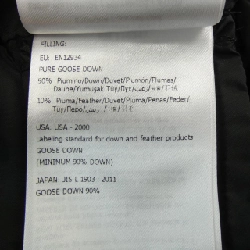 FILLING:
EU: EN12934
PURE GOOSE DOWN
90% Piuma/Down/Duvet/Plumón/Flaumea/
Daune/Yumuşak Tüy/
10% Piuma/Feather/Duvet/Pluma/Penas/Feder/
Tüy/Перо/
USA: USA - 2000
labeling standard for down and feather products
GOOSE DOWN
(MINIMUM 90% DOWN)
JAPAN: JIS L 1903 : 2011
GOOSE DOWN 90%